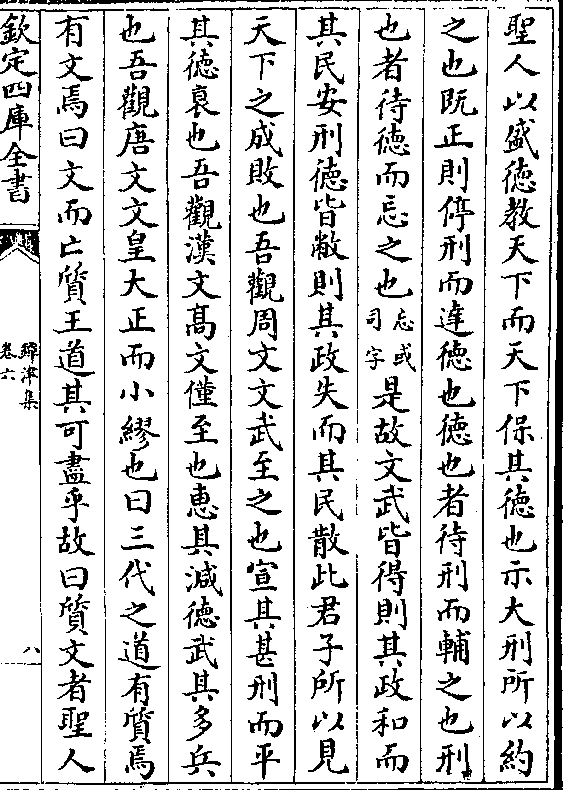 聖人以盛德教天下而天下保其德也示大刑所以約
之也既正則停刑而達德也德也者待刑而輔之也刑
也者待德而忌之也忌或司字是故文武皆得則其政和而
其民安刑德皆敝則其政失而其民散此君子所以見
天下之成敗也吾觀周文文武至之也宣其甚刑而平
其德衰也吾觀漢文髙文僅至也惠其減德武其多兵
也吾觀唐文文皇大正而小繆也曰三代之道有質焉
有文焉曰文而亡質王道其可盡乎故曰質文者聖人
欽定四庫全書
鐔津集
卷六
八